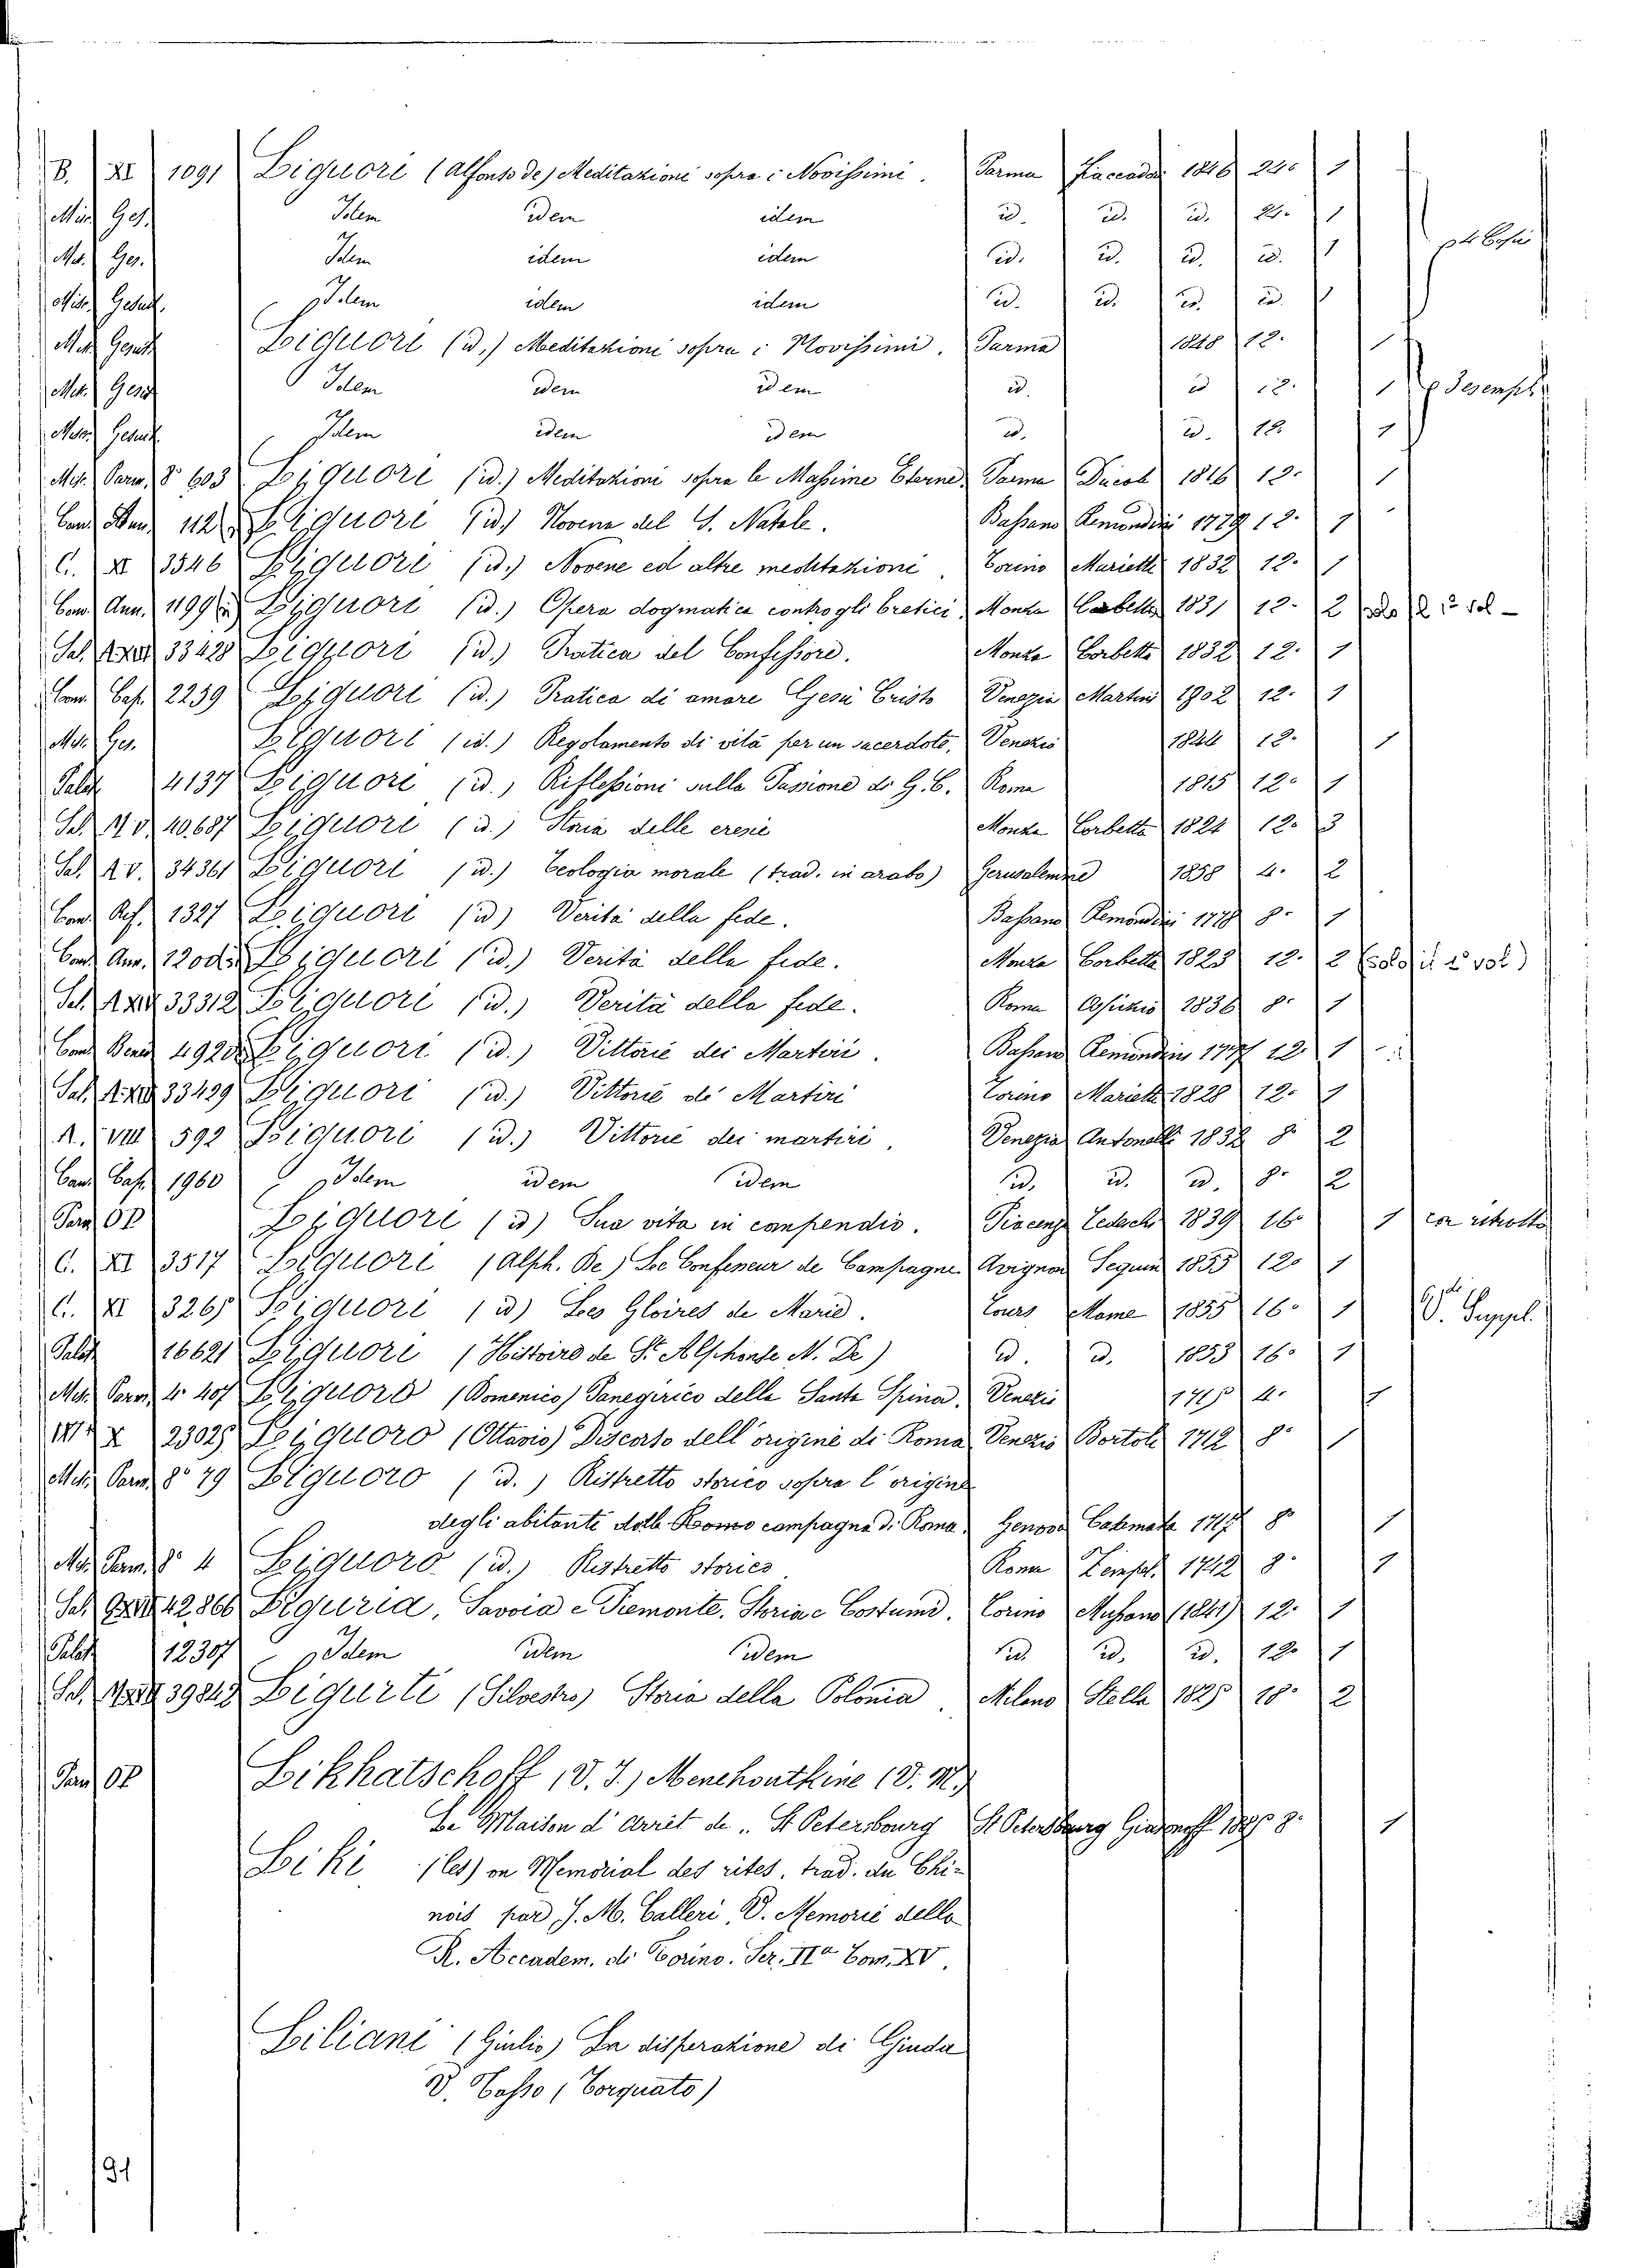 B. XI 1091 Liguori (Alfonso de) Meditazioni sopra i Novissimi. Parma Fiaccadori 1846 24° 1
Misc. Ges. Idem idem idem id. id. id. 24. 1
Mis. Ges. Idem idem idem id. id. id. id. 1
Misc. Gesuit. Idem idem idem id. id. id. id. 1
Mis. Gesuit. Liguori (id.) Meditazioni sopra i Novissimi. Parma 1848 12. 1
Mis. Gesuit. Idem idem idem id. id 12. 1
Misc. Gesuit. Idem idem idem id. id. 12. 1
Mis. Parm. 8° 603 Liguori (id.) Meditazioni sopra le Massime Eterne. Parma 1816 12. 1
112 Liguori (id.) Novena del S. Natale. Bassano Remondini 1779 12. 1
C. XI 3546 Liguori (id.) Novene ed altre meditazioni. Torino Marietti 1832 12. 1
Con. Ann. 1199 Liguori (id.) Opera dogmatica contro gli eretici. Monza Corbetta 1831 12. 2
Sal. 33428 Liguori (id.) Pratica del Confessore. Monza Corbetta 1832 12. 1
Con. Cap. 2239 Liguori (id.) Pratica di amare Gesù Cristo Venezia Martini 1802 12. 1
Mis. Ges. Liguori (id.) Regolamento di vita per un sacerdote. Venezia 1844 12. 1
Palat. 4137 Liguori (id.) Riflessioni sulla Passione di G. C. Roma 1815 12. 1
Sal. 40.687 Liguori (id.) Storia delle eresie Monza Corbetta 1821 12. 3
Sal. XV. 34361 Liguori (id.) Teologia morale (trad. in arabo) Gerusalemme 1858 4. 2
Con. Ref. 1327 Liguori (id) Verità della fede. Bassano Remondini 1778 8. 1
Con. Ann. 1200 Liguori (id.) Verità della fede. Monza Corbetta 1823 12. 2 (solo il 2° vol)
Sal. 33312 Liguori (id.) Verità della fede. Roma 1836 8. 1
Con. Bened. 4920 Liguori (id.) Vittorie dei Martiri. Bassano Remondini 1777 12. 1
Sal. 33429 Liguori (id.) Vittorie di Martiri Torino Marietti 1828 12. 1
A. VIII 592 Liguori (id.) Vittorie dei martiri. Venezia Antonelli 1832 8. 2
Con. Cap. 1960 Idem idem idem id. id. id. 8. 2
Parm. OP Liguori (id) Sua vita in conpendio. Piacenza Tedeschi 1839 16. 1 con ritratto
C. XI 3517 Liguori (Alph. De) Le Confesseur de Campagne. Avignon Seguin 1855 12. 1
C. XI 3265 Liguori (id) Les Gloires de Marie. Tours Mame 1855 16. 1 V. Suppl.
Palat. 16621 Liguori (Histoire de St Alphonse M. De) id. id. 1853 16. 1
Mis. Parm. 4° 407 Liguoro (Domenico) Panegirico della Santa Spina. Venezia 1715 4. 1
X 23025 Liguoro (Ottavio) Discorso dell'origine di Roma Venezia Bortoli 1712 8. 1
Mis. Parm. 8° 79 Liguoro (id.) Ristretto storico sopra l'origine
degli abitanti della campagna di Roma. Genova 1717 8° 1
Mis. Parm. 8° 4 Liguoro (id.) Ristretto storico Roma 1742 8. 1
Sal. 42866 Liguria, Savoia e Piemonte. Storia e Costumi. Torino (1841) 12. 1
Palat. 12307 Idem idem idem id. id. id. 12. 1
Sal. 39842 Ligurti (Silvestro) Storia della Polonia. Milano Stella 1825 18. 2
Parm. OP Likhatschoff (V. J.) Menchoutkine (V. M.)
La Maison d'arrêt de St Petersbourg St Petersbourg 8. 1
Liki (les) ou Memorial des rites. trad. du Chi-
nois par J. M. Calleri. V. Memorie della
R. Accadem. di Torino. Ser. IIa Tom. XV.
Liliani (Giulio) La disperazione di Giuda
V. Tasso (Torquato)
91